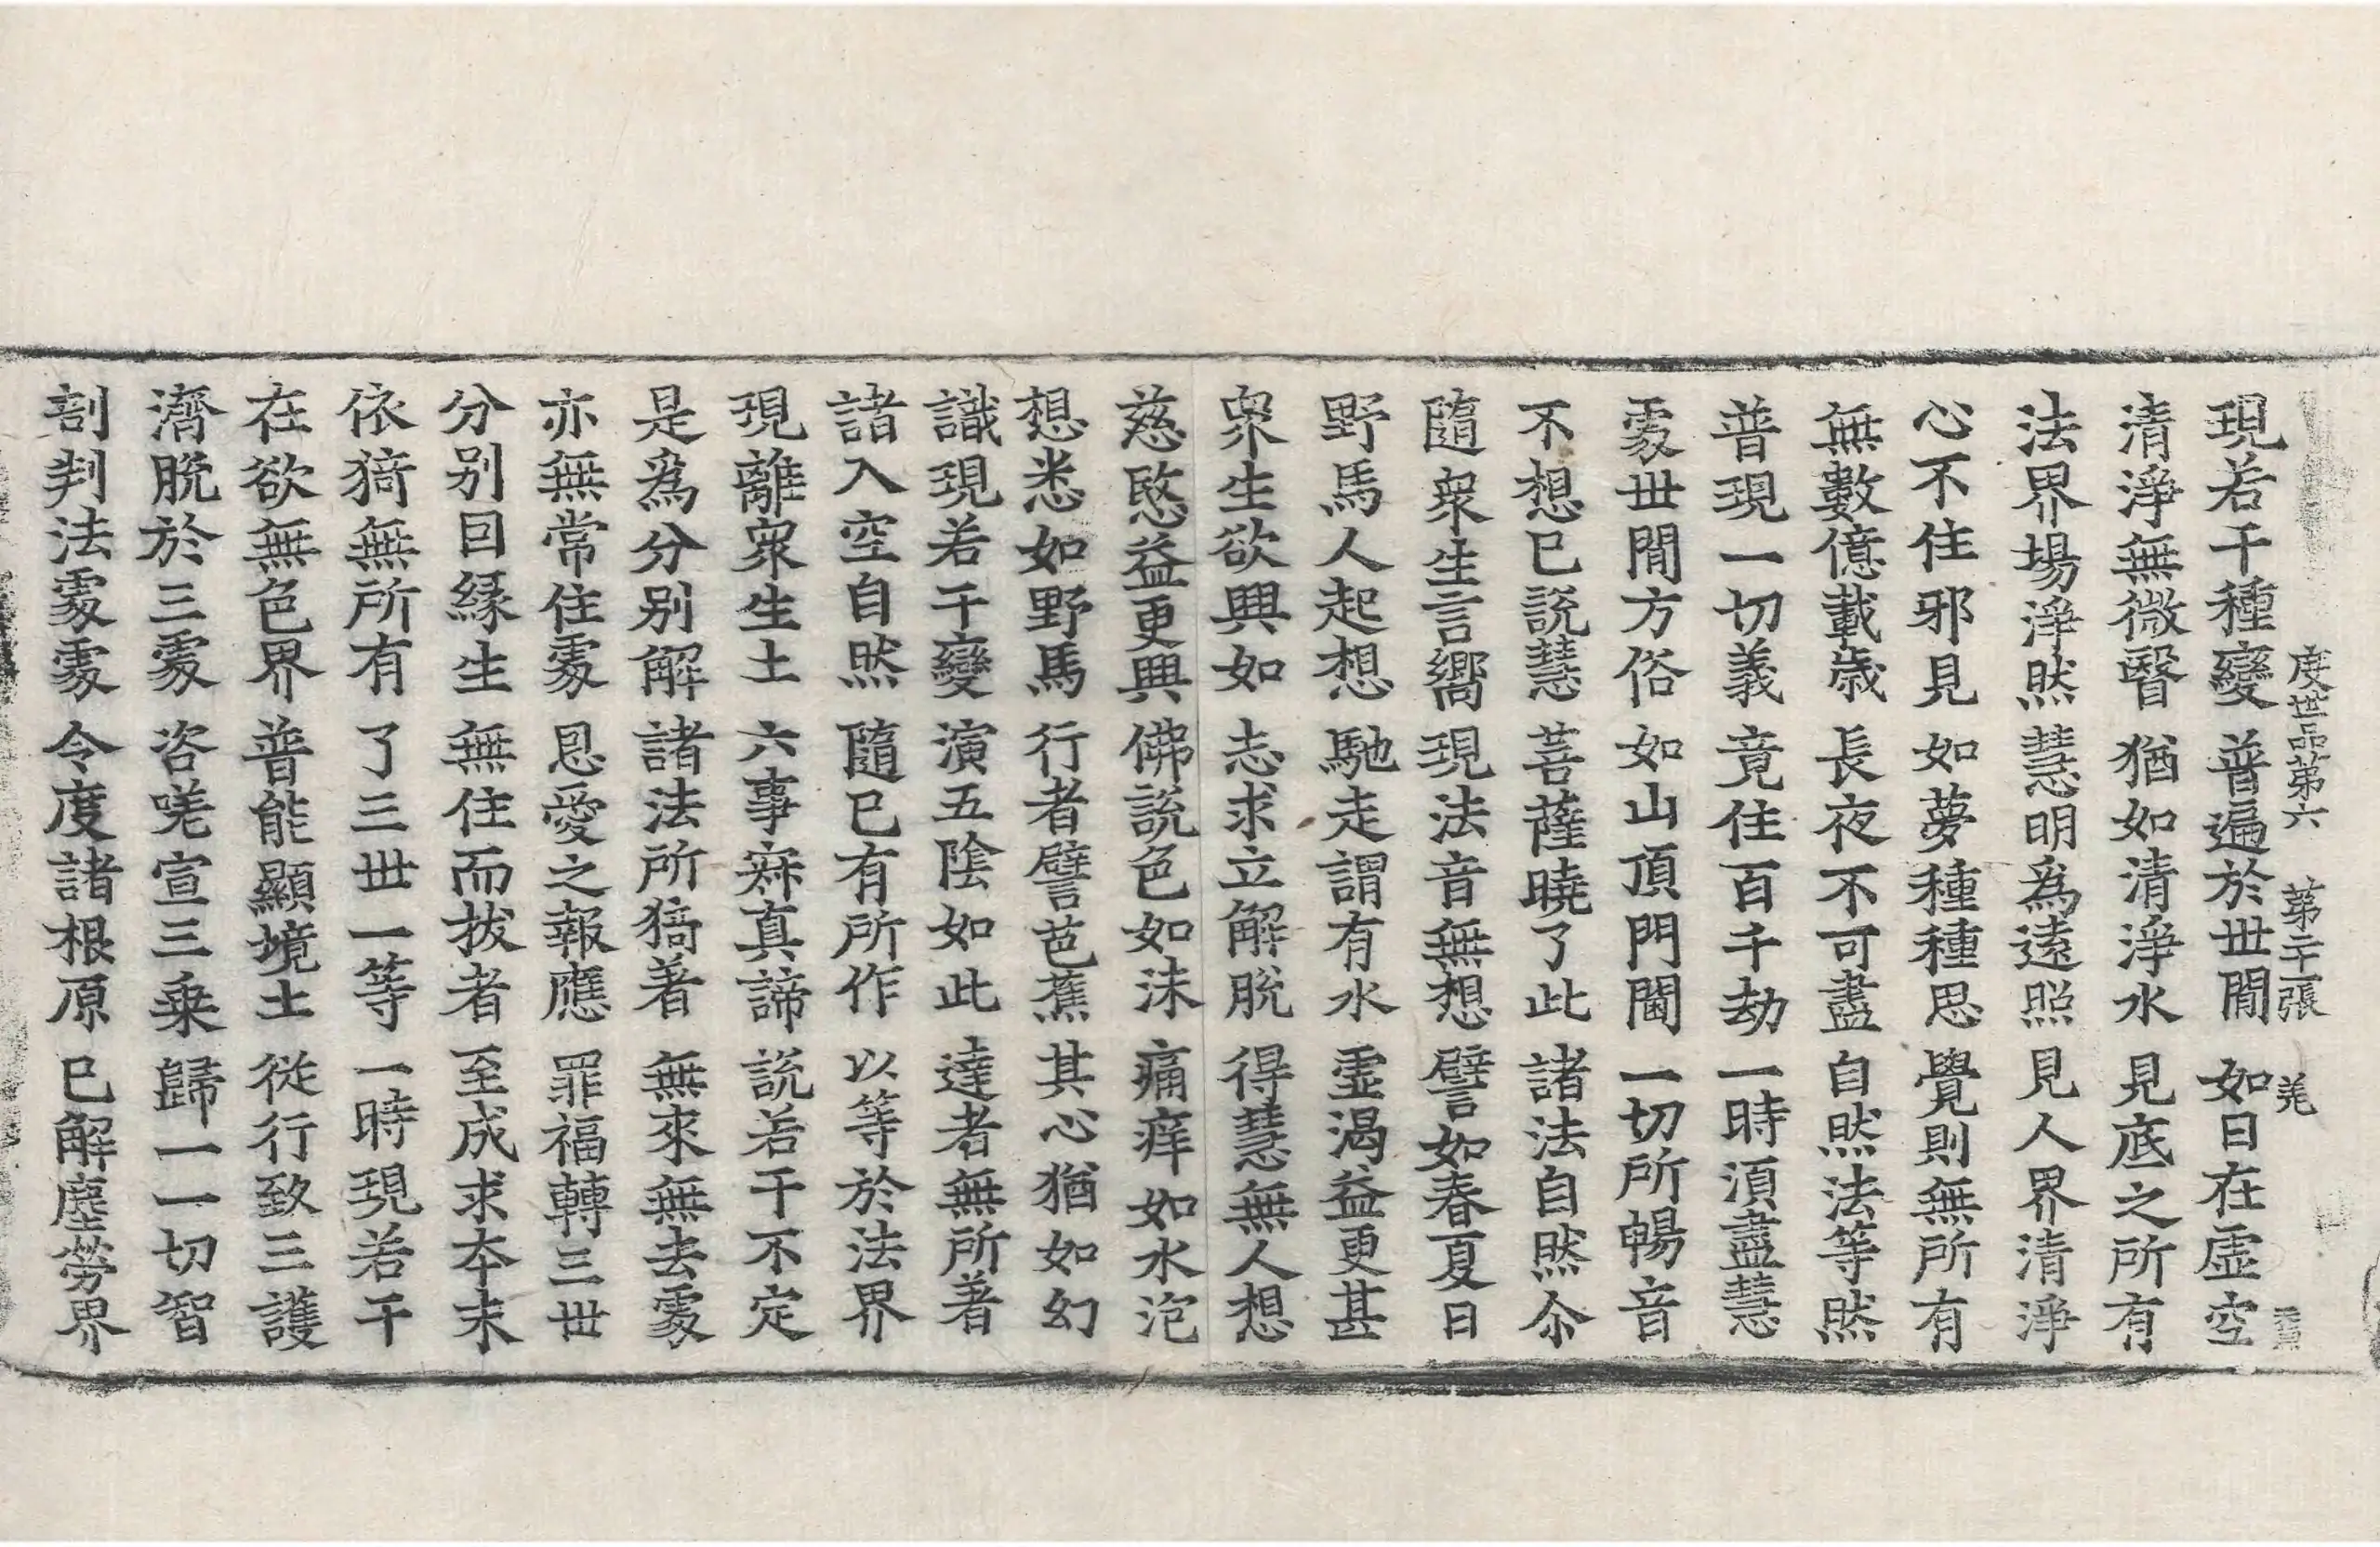 度世品第六 第二十一張 羌
現若干種變 普遍於世閒 如日在虛空
清淨無微翳 猶如清淨水 見底之所有
法界場淨然 慧明爲遠照 見人界清淨
心不住邪見 如夢種種思 覺則無所有
無數億載歲 長夜不可盡 自然法等然
普現一切義 竟住百千劫 一時湏盡慧
䖏世閒方俗 如山頂門閫 一切所暢音
不想已說慧 菩薩曉了此 諸法自然尒
隨衆生言嚮 現法音無想 譬如春夏日
野馬人起想 馳走謂有水 虛渴益更甚
衆生欲興如 志求立解脫 得慧無人想
慈愍益更興 佛說色如沫 痛痒如水泡
想悉如野馬 行者譬芭蕉 其心猶如幻
識現若干變 演五陰如此 達者無所著
諸入空自然 隨已有所作 以等於法界
現離衆生土 六事寂真諦 說若干不定
是爲分别解 諸法所猗著 無來無去䖏
亦無常住䖏 恩愛之報應 罪福轉三世
分别因緣生 無住而拔者 至成求本末
依猗無所有 了三世一等 一時現若干
在欲無色界 普能顯境土 從行致三護
濟脫於三䖏 咨嗟宣三乘 歸一一切智
剖判法䖏䖏 令度諸根原 已解塵勞界